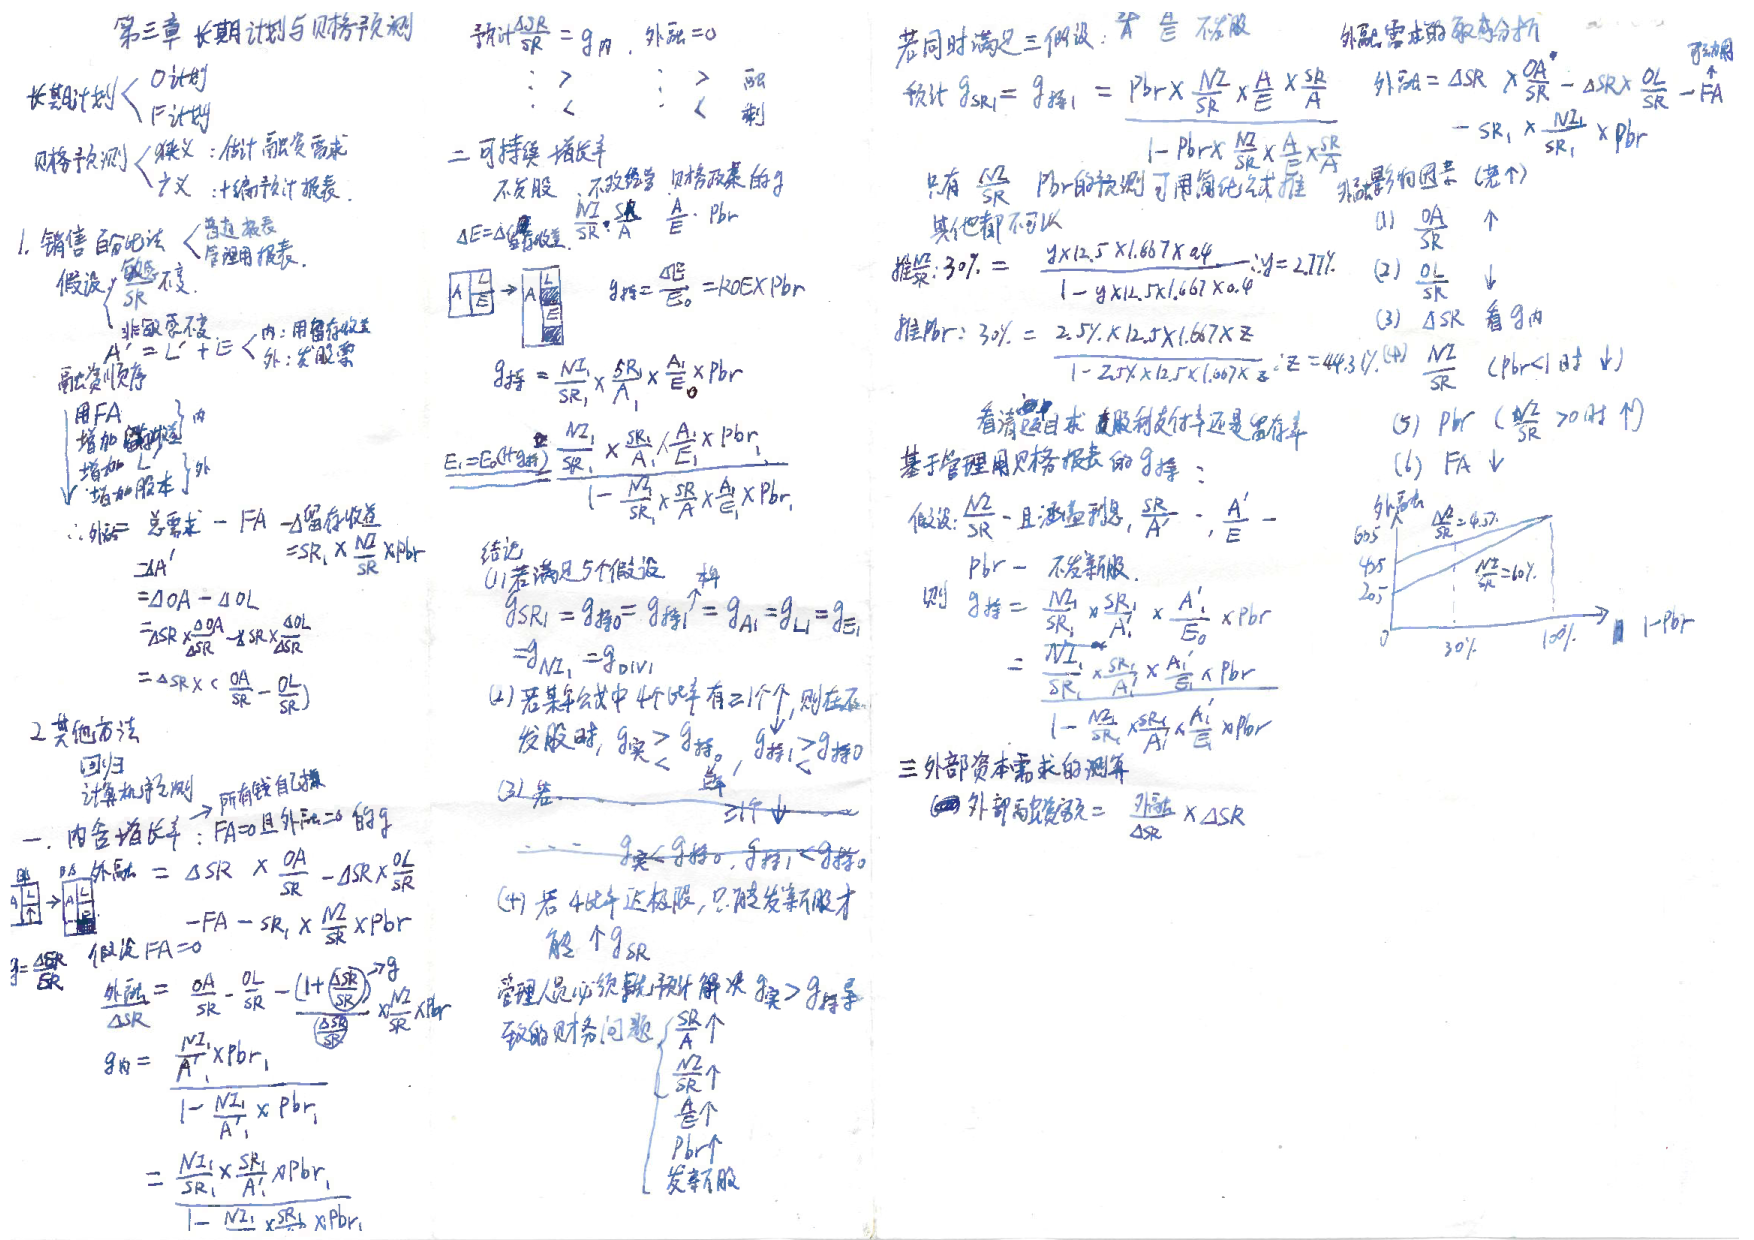 第三章 长期计划与财务预测
长期计划
O计划
F计划
财务预测
狭义：估计融资需求
广义：+编预计报表.
1. 销售百分比法
普通报表
管理用报表.
假设
敏感/SR 不变.
非敏感不变
A' = L' + E
内：用留存收益
外：发股票
融资顺序
用FA
增加留存收益
内
增加L
增加股本
外
∴外融 = 总需求 - FA - Δ留存收益
= SR₁ × NI/SR × pbr
=ΔA'
=ΔOA - ΔOL
=ΔSR × ΔOA/ΔSR - ΔSR × ΔOL/ΔSR
=ΔSR × (OA/SR - OL/SR)
2 其他方法
回归
计算机预测
→ 所有钱自己赚
一. 内含增长率：FA=0且外融=0的g
外融 = ΔSR × OA/SR - ΔSR × OL/SR
- FA - SR₁ × NI/SR × pbr
g=ΔSR/SR 假设FA=0
外融/ΔSR = OA/SR - OL/SR - (1+ΔSR/SR)/(ΔSR/SR) × NI/SR × pbr
→g
g内 = (NI₁/A'₁ × pbr₁)/(1 - NI₁/A'₁ × pbr₁)
= (NI₁/SR₁ × SR₁/A'₁ × pbr₁)/(1 - NI₁ × SR₁ × pbr₁
预计 ΔSR/SR = g内, 外融=0
: > : > 融
: < : < 剩
二 可持续增长率
不发股、不改经营、财务政策的g
NI/SR · SR/A A/E · pbr
ΔE=Δ留存收益
A L E → A L E
g持 = ΔE/E₀ = ROE × pbr
g持 = NI₁/SR₁ × SR₁/A₁ × A₁/E₀ × pbr
E₁=E₀(1+g持) (NI₁/SR₁ × SR₁/A₁ × A₁/E₁ × pbr₁)/(1 - NI₁/SR₁ × SR/A × A₁/E₁ × pbr₁)
结论
(1) 若满足5个假设
gSR₁ = g持₀ = g持₁ = gA₁ = gL₁ = gE₁
= gNI₁ = gDIV₁
(2) 若某年公式中4个比率有≥1个↑, 则在不
发股时, g实 >< g持₀, g持₁ >< g持₀
(3) 若
≥1个↓
g实 < g持₀, g持₁ < g持₀
(4) 若4比率达极限, 只能发新股才
能 ↑ gSR
管理人员必须预计解决 g实 > g持导
致的财务问题
SR/A ↑
NI/SR ↑
A/E ↑
pbr↑
发新股
若同时满足三假设： A/E 不发股
预计 gSR₁ = g持₁ = (pbr × NI/SR × A/E × SR/A)/(1 - pbr × NI/SR × A/E × SR/A)
只有 NI/SR pbr的预测可用简化公式推
其他都不可以
推NI/SR: 30% = (y×12.5×1.667×0.4)/(1-y×12.5×1.667×0.4) ∴y=2.77%
推pbr: 30% = (2.5%×12.5×1.667×z)/(1-2.5%×12.5×1.667×z) ∴z=44.31%
看清题目求股利支付率还是留存率
基于管理用财务报表的g持：
假设: NI/SR - 且涵盖利息, SR/A' -, A'/E -
pbr - 不发新股.
则 g持 = NI₁/SR₁ × SR₁/A'₁ × A'₁/E₀ × pbr
= (NI₁/SR₁ × SR₁/A'₁ × A'₁/E₁ × pbr)/(1 - NI₁/SR₁ × SR₁/A'₁ × A'₁/E₁ × pbr)
三 外部资本需求的测算
外部融资额 = 外融/ΔSR × ΔSR
外融需求的敏感分析
可动用
外融 = ΔSR × OA/SR - ΔSR × OL/SR - FA
- SR₁ × NI₁/SR₁ × pbr
外融影响因素 (克↑)
(1) OA/SR ↑
(2) OL/SR ↓
(3) ΔSR 看g内
(4) NI/SR (pbr<1时 ↓)
(5) pbr (NI/SR >0时 ↑)
(6) FA ↓
外融
605
405
205
NI/SR=4.5%
NI/SR=60%
0
30%
100%
1-pbr